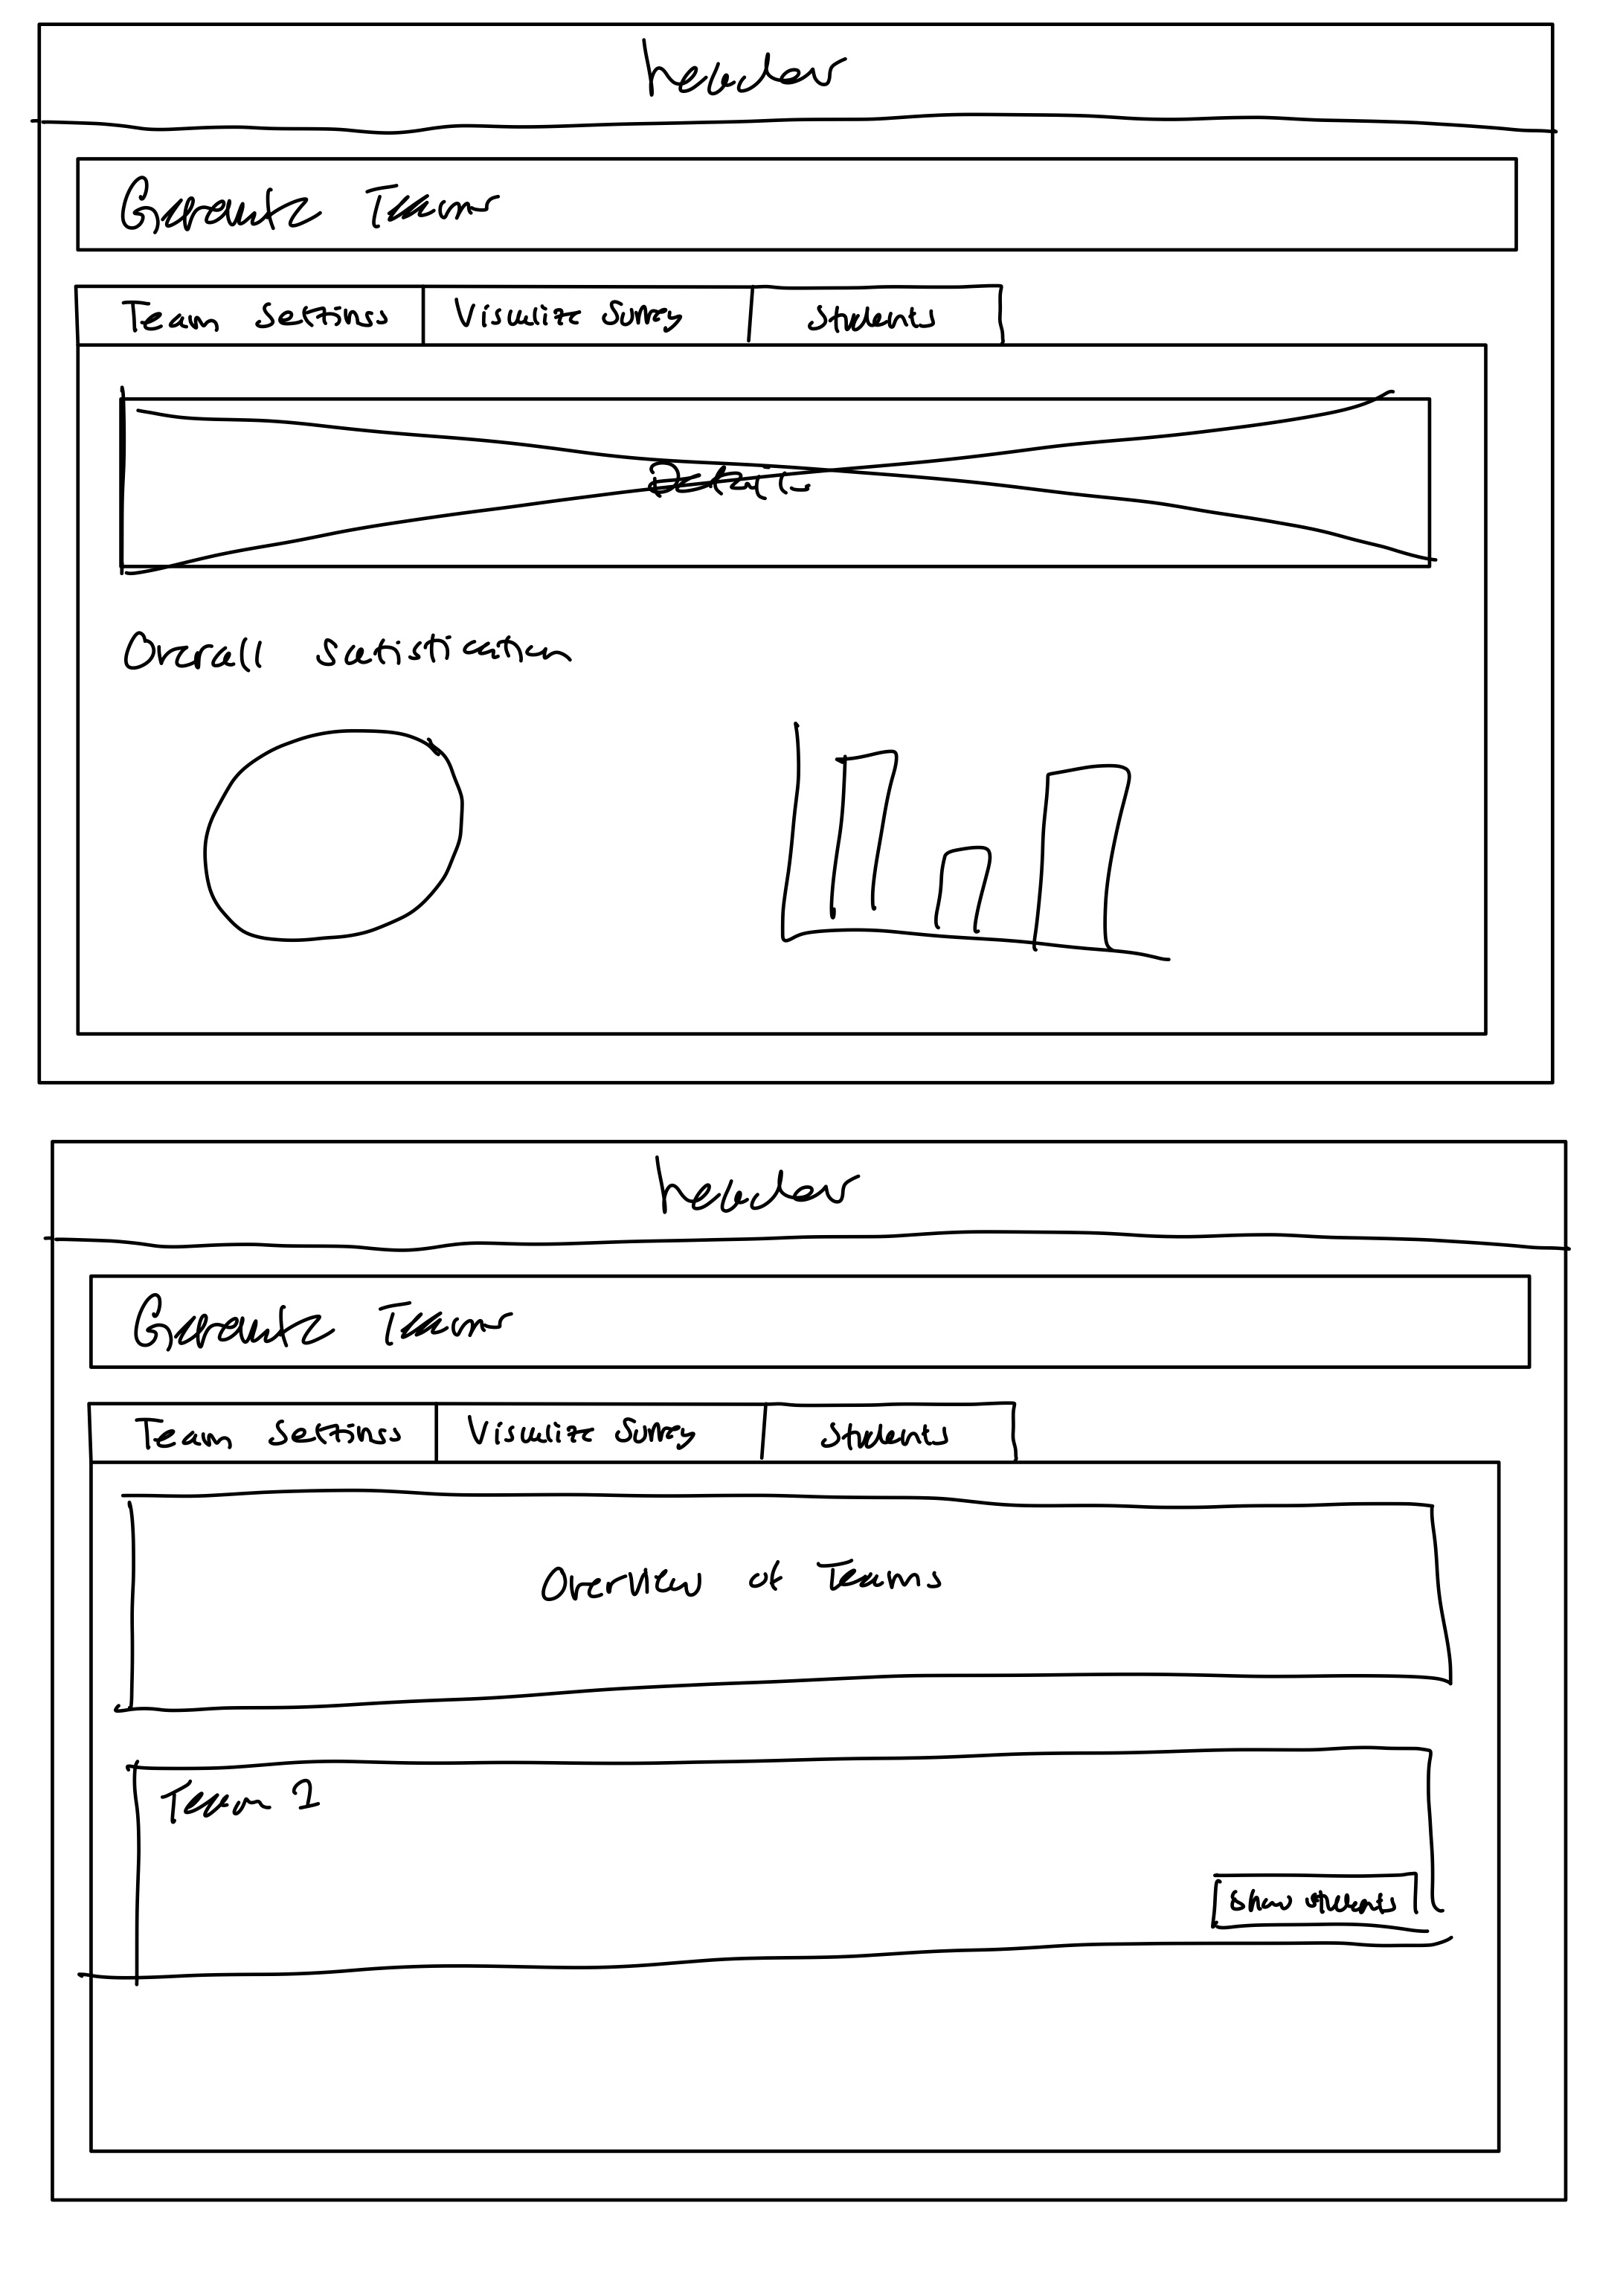 header
Generate Teams
Team Settings Visualize Survey Students
Details
Overall satisfication
header
Generate Teams
Team Settings Visualize Survey Students
Overview of Teams
Team 1
Show students